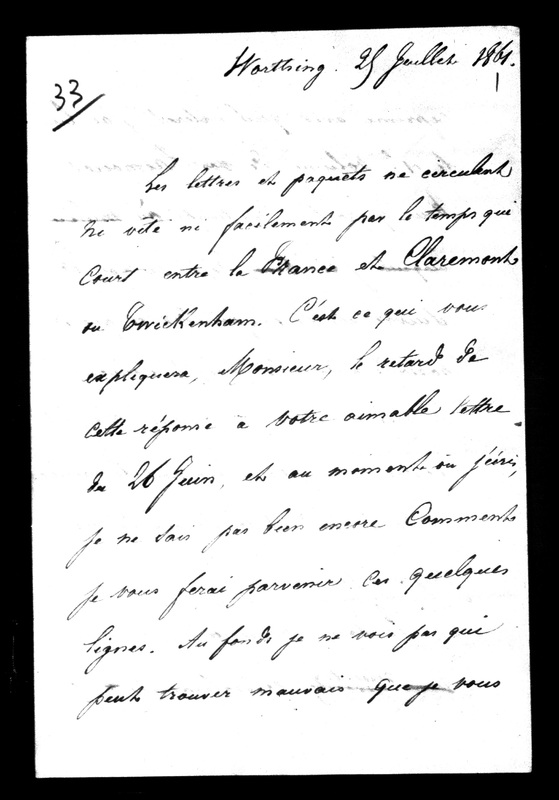 Worthing. 25 Juillet 1861.
33
Les lettres et paquets ne circulent
ni vite ni facilement par le temps qui
court entre la France et Claremont
ou Twickenham. C'est ce qui vous
expliquera, Monsieur, le retard de
cette réponse à votre aimable lettre
du 26 Juin, et au moment où j'écris,
je ne sais pas bien encore comment
je vous ferai parvenir ces quelques
lignes. Au fond, je ne vois pas qui
peut trouver mauvais que je vous